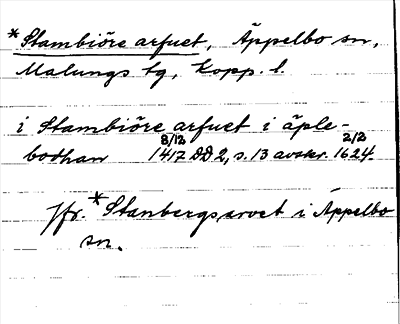 *Stambiöre arfuet, Äppelbo sn,
Malungs tg, Kopp. l.
i Stambiöre arfuet i äple-
bodhan 8/12 1417 DD 2, s. 13 avskr. 2/2 1624.
Jfr. *Stanbergsarvet i Äppelbo
sn.